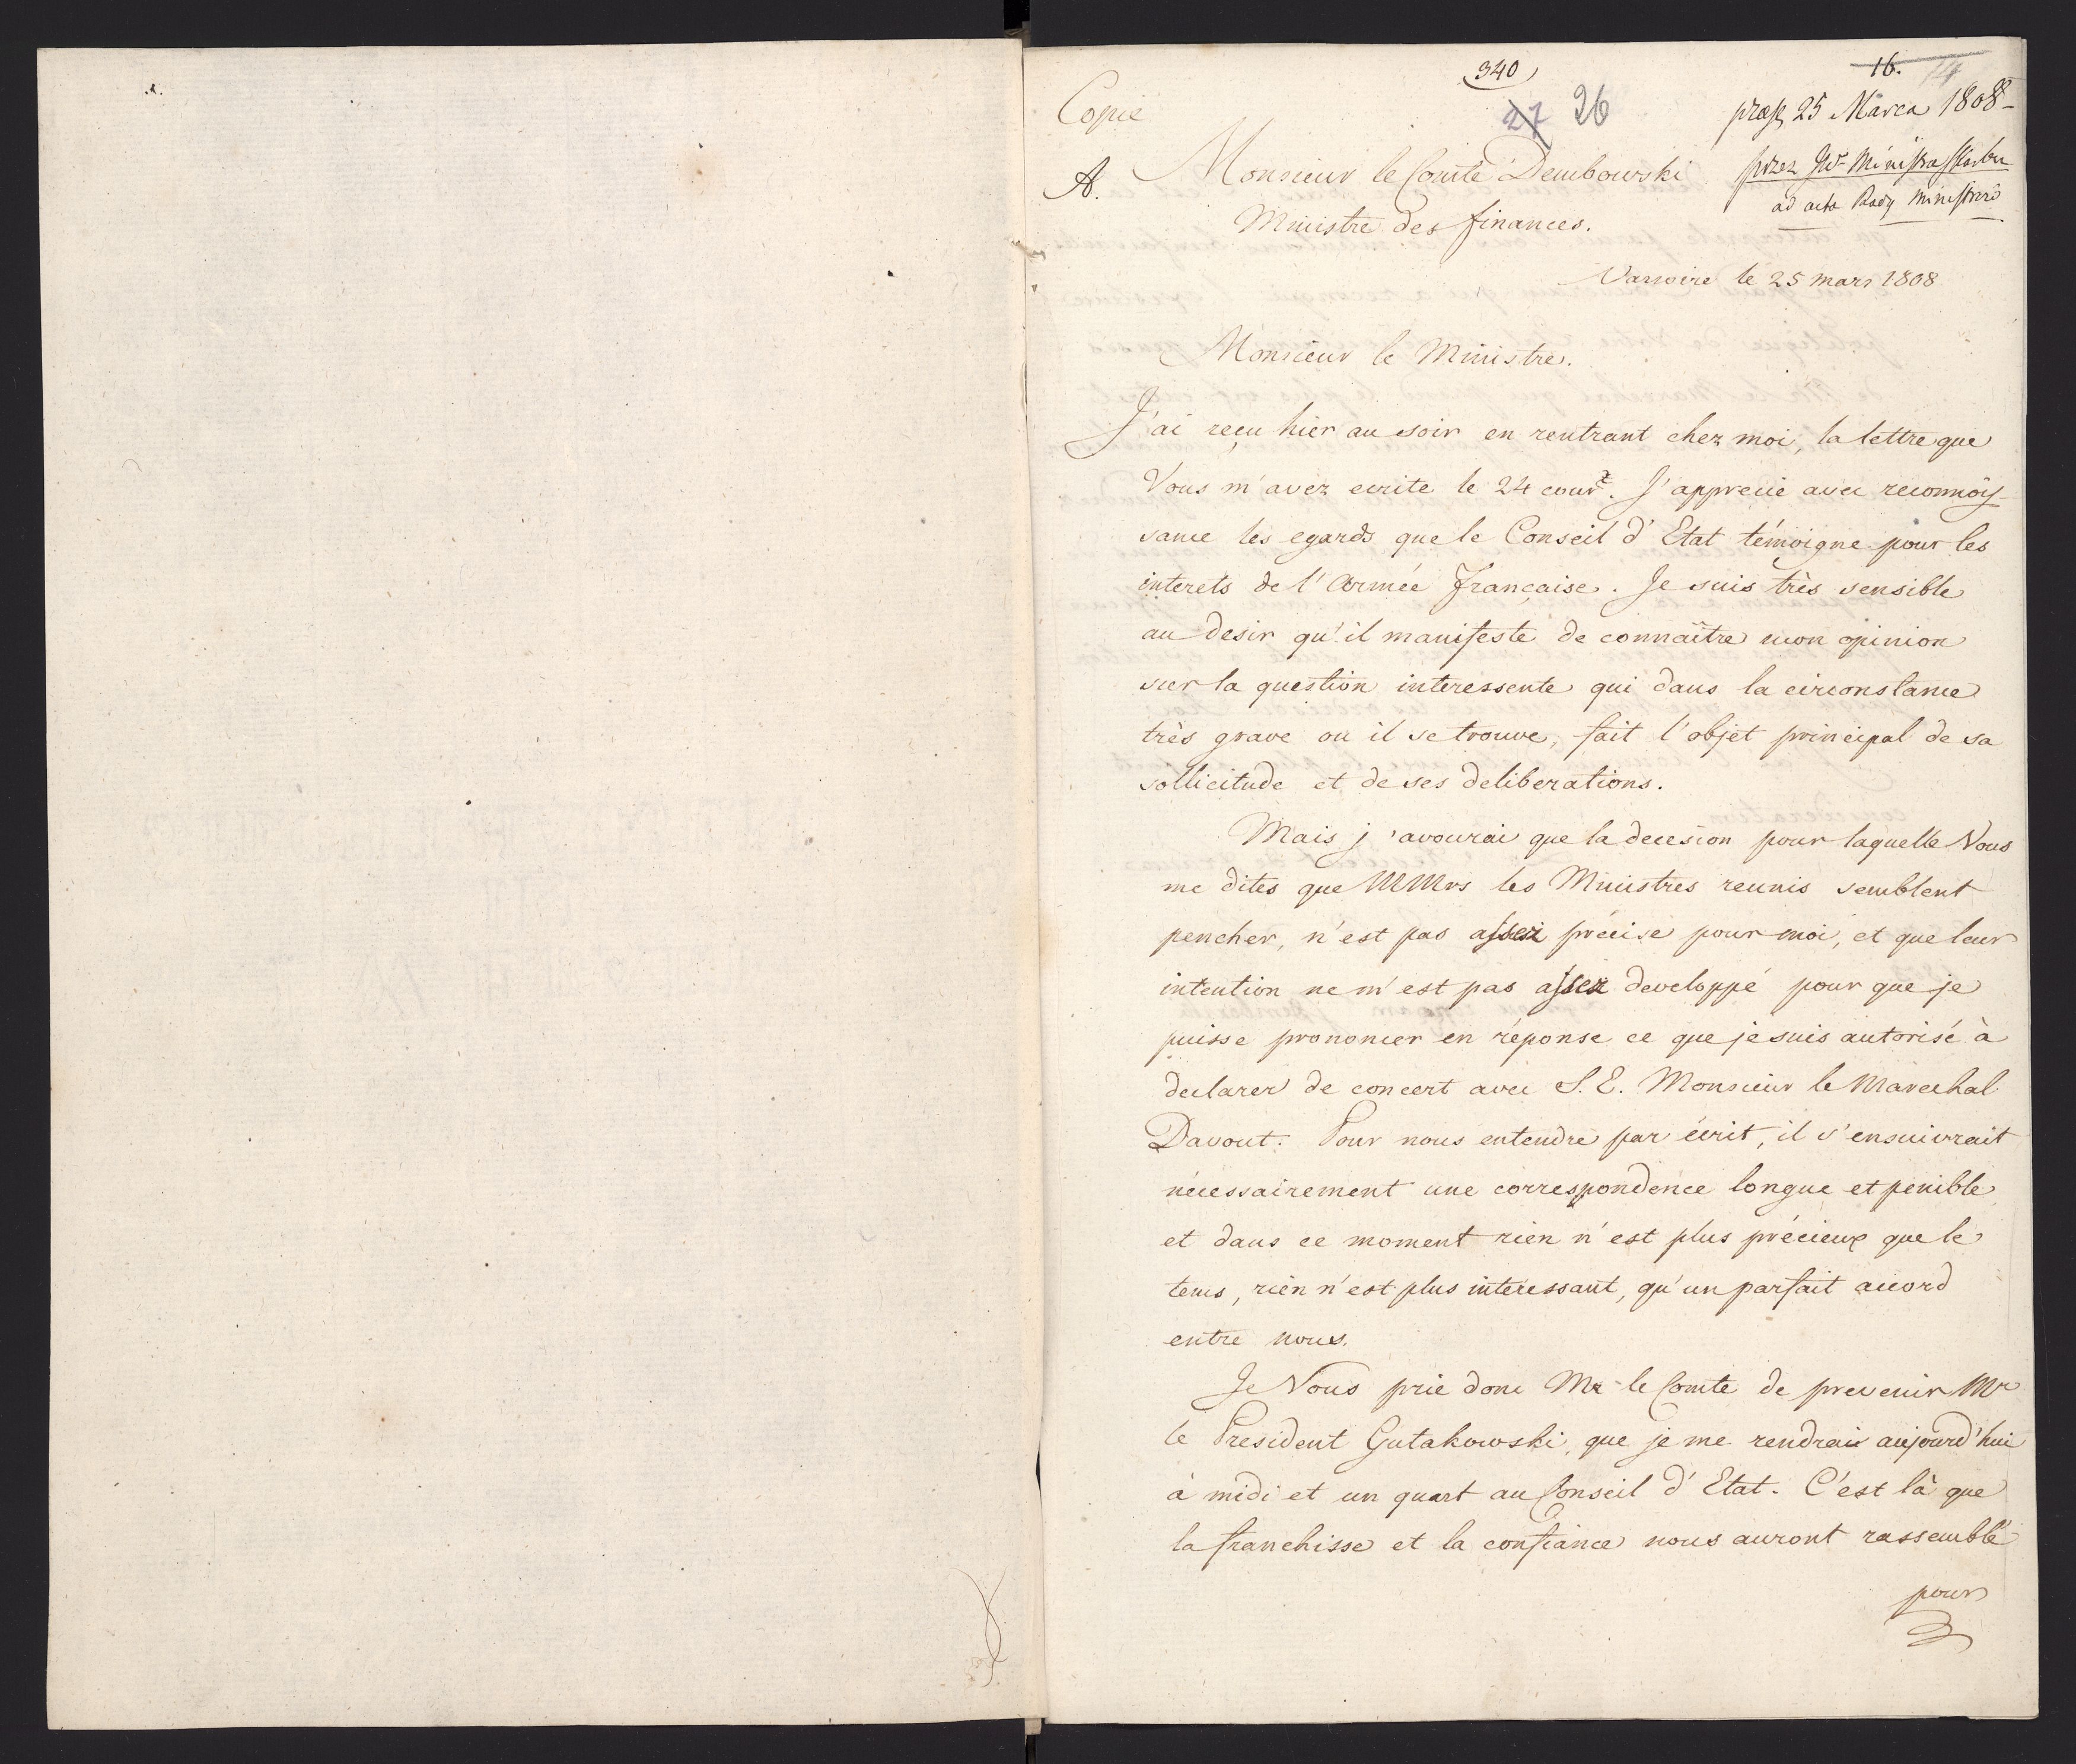 340
16. 14
Copie
27 26
præs 25 Marca 1808
A.
Monsieur le Comte Dembowski
przez JW Ministra Skarbu
Ministre des finances.
ad acta Rady Ministrów
Varsovie le 25 mars 1808
Monsieur le Ministre.
J'ai reçu hier au soir en rentrant chez moi, la lettre que
Vous m'avez ecrite le 24 cour.t J'apprecie avec reconnois-
sance les egards que le Conseil d'Etat témoigne pour les
interets de l'Armée Française. Je suis très sensible
au desir qu'il manifeste de connaître mon opinion
sur la question interessente qui dans la circonstance
très grave ou il se trouve, fait l'objet principal de sa
sollicitude et de ses deliberations.
Mais j'avourai que la decesion pour laquelle Vous
me dites que MMrs les Ministres reunis semblent
pencher, n'est pas assez précise pour moi, et que leur
intention ne m'est pas assez developpé pour que je
puisse prononcer en réponse ce que je suis autorisé à
declarer de concert avec S. E. Monsieur le Marechal
Davout. Pour nous entendre par écrit, il s'ensuivrait
nécessairement une correspondence longue et penible
et dans ce moment rien n'est plus précieux que le
tems, rien n'est plus intéressant, qu'un parfait accord
entre nous.
Je Vous prie donc Mr le Comte de prevenir Mr
le President Gutakowski, que je me rendrai aujourd'hui
à midi et un quart au Conseil d'Etat. C'est là que
la franchisse et la confiance nous auront rassemblé
pour